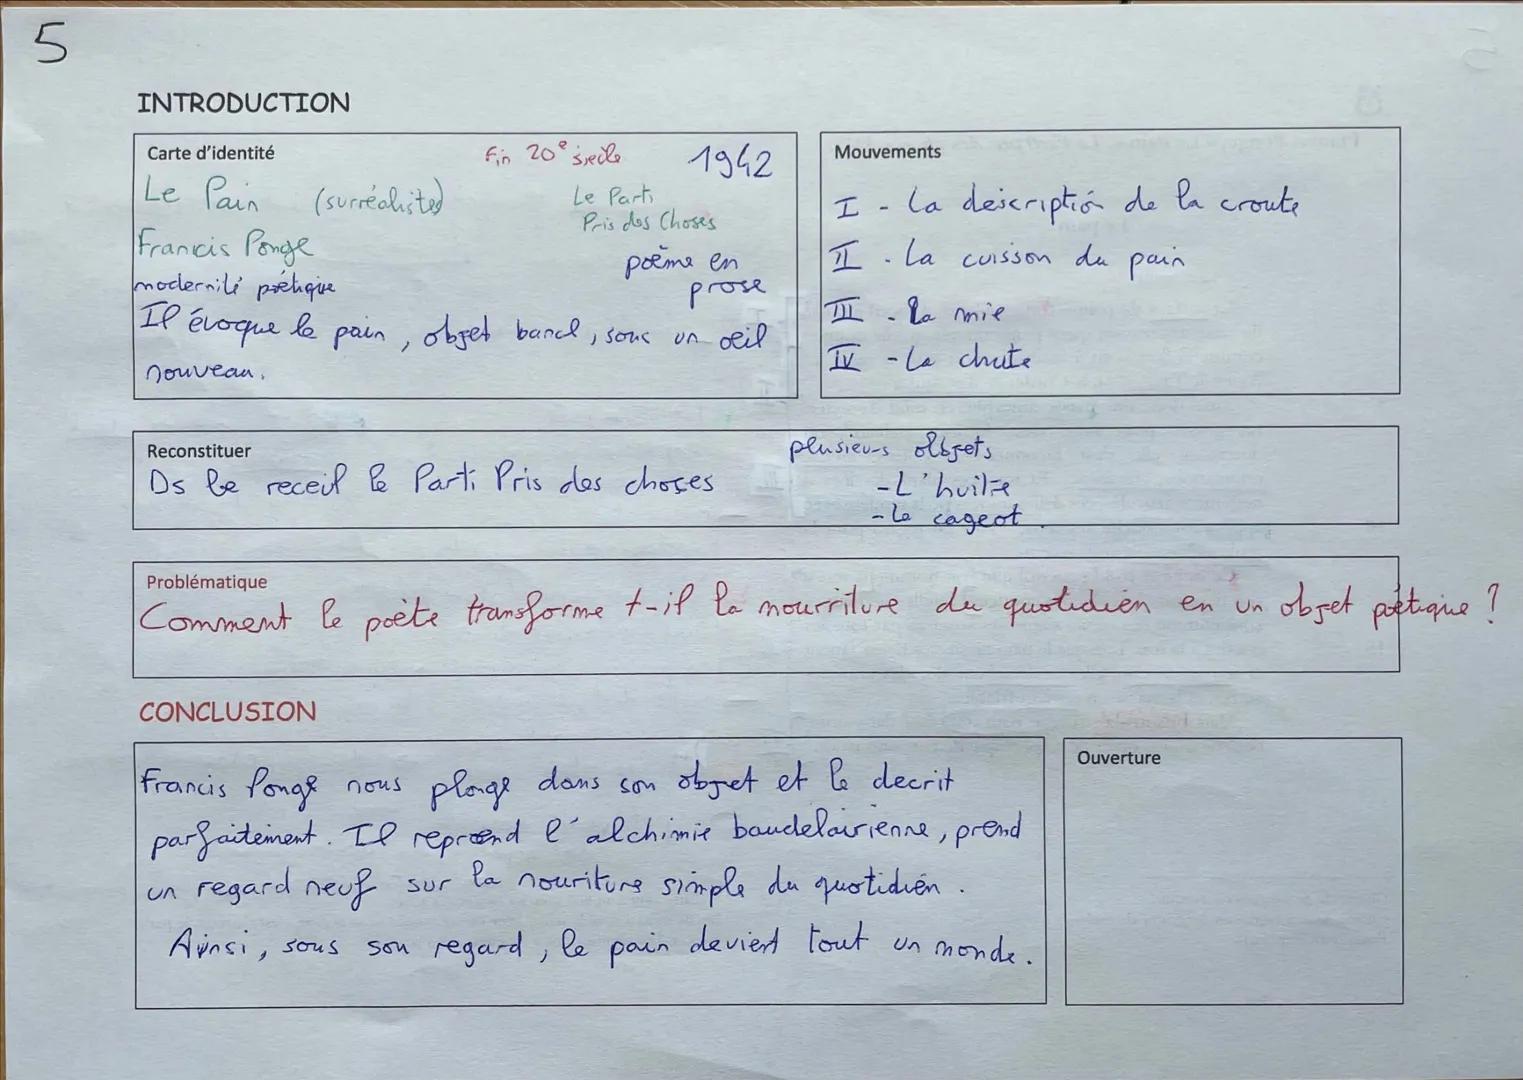 5
INTRODUCTION
Carte d'identité
Fin 20e siecle
1942
Le Pain (surréalistes)
Le Parti
Pris des Choses
Francis Ponge
poème en
prose
modernité poétique
Il évoque le pain, objet banal, sous un oeil
nouveau.
Mouvements
I - La description de la croute
II - La cuisson du pain
III - La mie
IV - La chute
Reconstituer
Ds le receuil le Parti Pris des choses
plusieurs objets
- L'huitre
- Le cageot.
Problématique
Comment le poète transforme t-il la nourriture du quotidien en un objet poétique ?
CONCLUSION
Francis Ponge nous plonge dans son objet et le decrit
parfaitement. Il reprend l'alchimie baudelairienne, prend
un regard neuf sur la nouriture simple du quotidien.
Ainsi, sous son regard, le pain devient tout un monde.
Ouverture